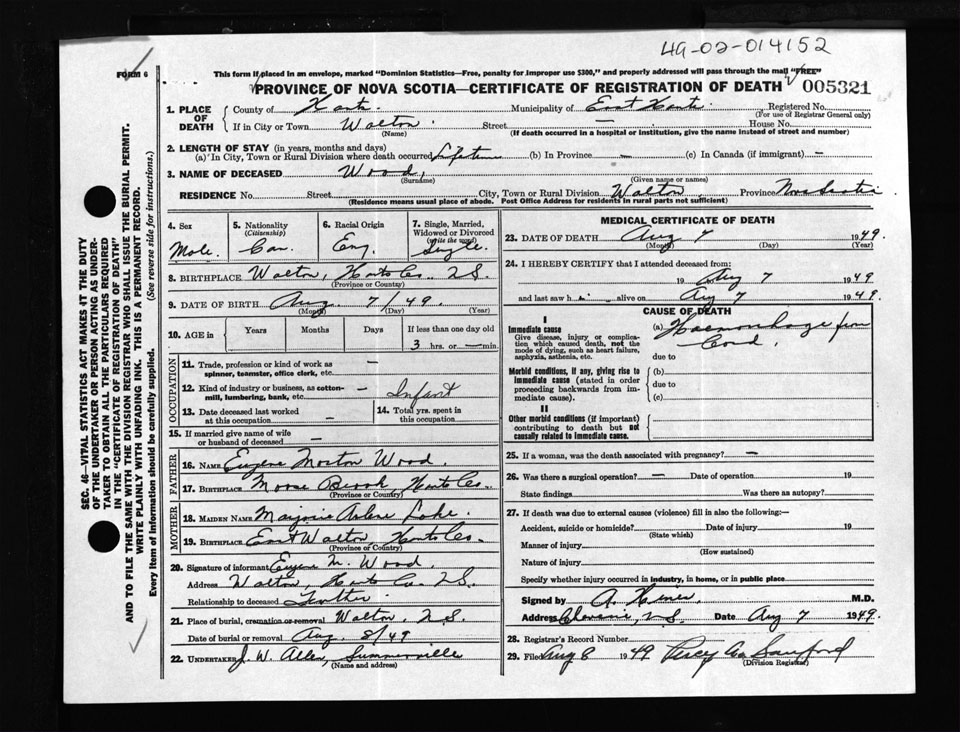 49-02-014152
FORM 6
This form if placed in an envelope, marked "Dominion Statistics—Free, penalty for improper use $300," and properly addressed will pass through the mail "FREE"
PROVINCE OF NOVA SCOTIA—CERTIFICATE OF REGISTRATION OF DEATH 005321
1. PLACE OF DEATH
County of Hants Municipality of East Hants Registered No.
(For use of Registrar General only)
If in City or Town Walton Street — House No.
(Name) (If death occurred in a hospital or institution, give the name instead of street and number)
2. LENGTH OF STAY (in years, months and days)
(a) In City, Town or Rural Division where death occurred Lifetime (b) In Province — (c) In Canada (if immigrant) —
3. NAME OF DECEASED Wood,
(Surname) (Given name or names)
RESIDENCE No. Street City, Town or Rural Division Walton Province Nova Scotia
(Residence means usual place of abode. Post Office Address for residents in rural parts not sufficient)
4. Sex
Male.
5. Nationality
(Citizenship)
Can.
6. Racial Origin
Eng.
7. Single, Married, Widowed or Divorced
(write the word)
Single.
8. BIRTHPLACE Walton, Hants Co. N.S.
(Province or Country)
9. DATE OF BIRTH Aug. 7/49.
(Month) (Day) (Year)
10. AGE in Years Months Days If less than one day old
3 hrs. or — min.
OCCUPATION
11. Trade, profession or kind of work as spinner, teamster, office clerk, etc. —
12. Kind of industry or business, as cotton-mill, lumbering, bank, etc. — Infant
13. Date deceased last worked at this occupation —
14. Total yrs. spent in this occupation
15. If married give name of wife or husband of deceased —
FATHER
16. NAME Eugene Morton Wood.
17. BIRTHPLACE Moose Brook, Hants Co.
(Province or Country)
MOTHER
18. MAIDEN NAME Marjorie Arlene Lake.
19. BIRTHPLACE East Walton Hants Co.
(Province or Country)
20. Signature of informant Eugene M. Wood.
Address Walton, Hants Co. N.S.
Relationship to deceased Father.
21. Place of burial, cremation or removal Walton, N.S.
Date of burial or removal Aug. 8/49
22. UNDERTAKER J. W. Allen, Summerville
(Name and address)
MEDICAL CERTIFICATE OF DEATH
23. DATE OF DEATH Aug 7 1949.
(Month) (Day) (Year)
24. I HEREBY CERTIFY that I attended deceased from:
19 to Aug 7 1949
and last saw him alive on Aug 7 1949.
CAUSE OF DEATH
I
Immediate cause
Give disease, injury or complication which caused death, not the mode of dying, such as heart failure, asphyxia, asthenia, etc.
(a) Haemorrhage from Cord.
due to
Morbid conditions, if any, giving rise to immediate cause (stated in order proceeding backwards from immediate cause.)
(b)
due to
(c)
II
Other morbid conditions (if important) contributing to death but not causally related to immediate cause.
25. If a woman, was the death associated with pregnancy? —
26. Was there a surgical operation? — Date of operation 19
State findings Was there an autopsy?
27. If death was due to external causes (violence) fill in also the following:—
Accident, suicide or homicide? Date of injury 19
(State which)
Manner of injury
(How sustained)
Nature of injury
Specify whether injury occurred in industry, in home, or in public place
Signed by M.D.
Address Cheverie, N.S. Date Aug 7 1949.
28. Registrar's Record Number
29. Filed Aug 8 1949 Percy A. Sanford
(Division Registrar)
SEC. 46—VITAL STATISTICS ACT MAKES IT THE DUTY
OF THE UNDERTAKER OR PERSON ACTING AS UNDER-
TAKER TO OBTAIN ALL THE PARTICULARS REQUIRED
IN THE "CERTIFICATE OF REGISTRATION OF DEATH"
AND TO FILE THE SAME WITH THE DIVISION REGISTRAR WHO SHALL ISSUE THE BURIAL PERMIT.
WRITE PLAINLY WITH UNFADING INK. THIS IS A PERMANENT RECORD.
Every item of information should be carefully supplied. (See reverse side for instructions.)